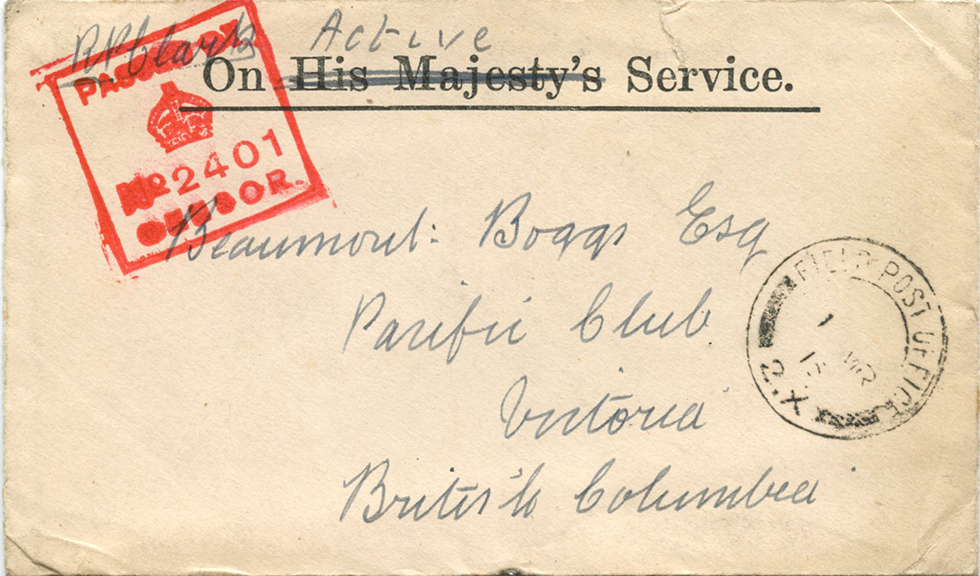 R P Clark
Active
On His Majesty's Service.
PASSED BY
No 2401
CENSOR.
Beaumont Boggs Esq
Pacific Club
Victoria
British Columbia
FIELD POST OFFICE
1
15
2.X